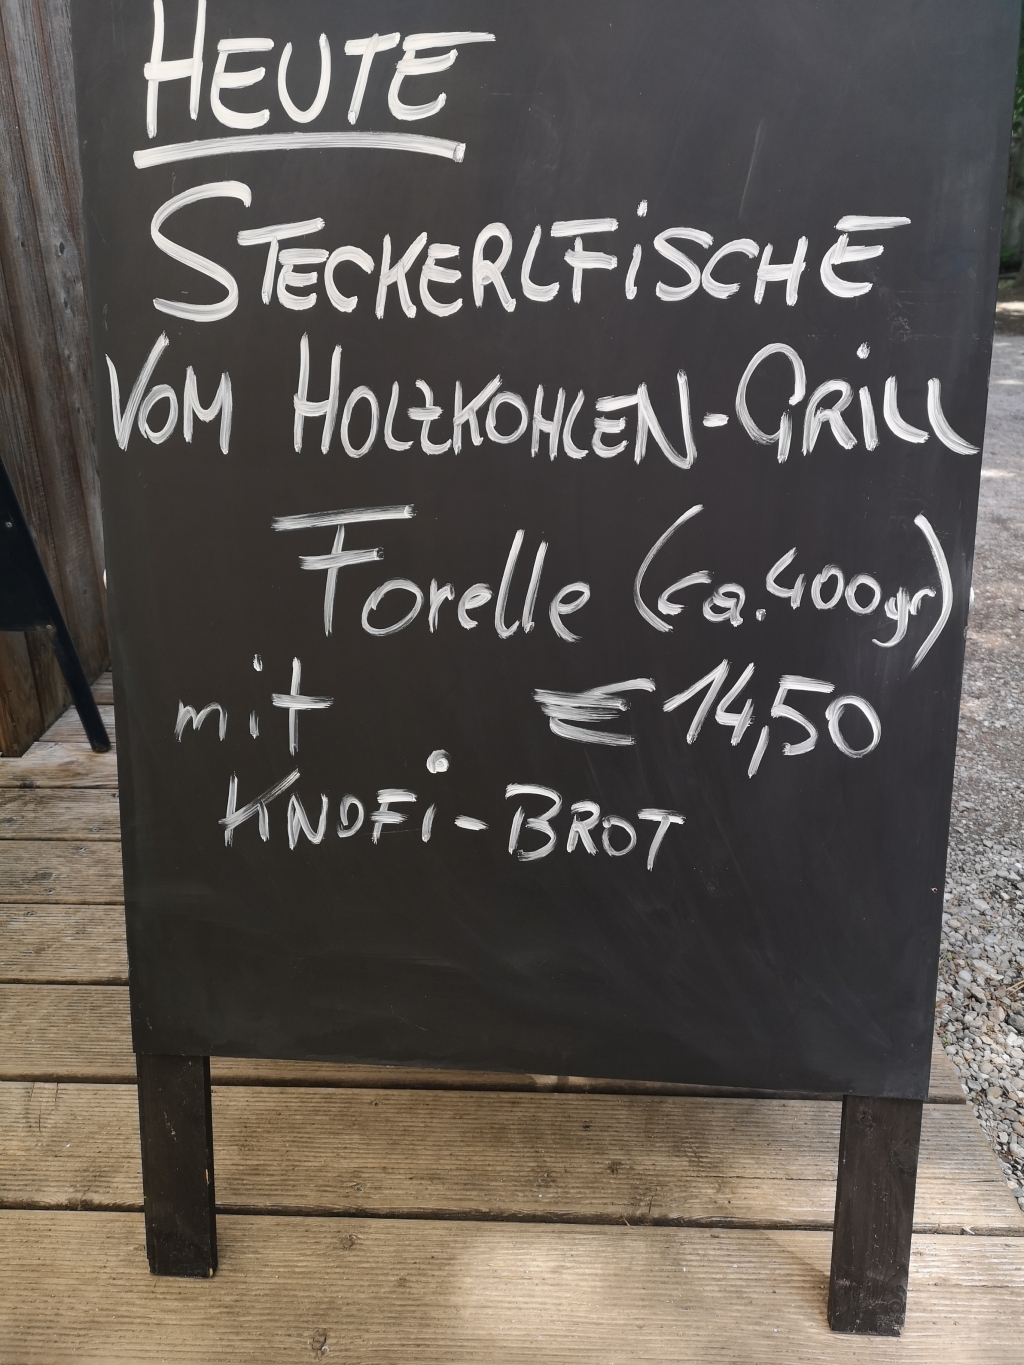 HEUTE
STECKERLFISCHE
VOM HOLZKOHLEN-GRILL
Forelle (ca. 400gr)
mit € 14,50
KNOFI-BROT